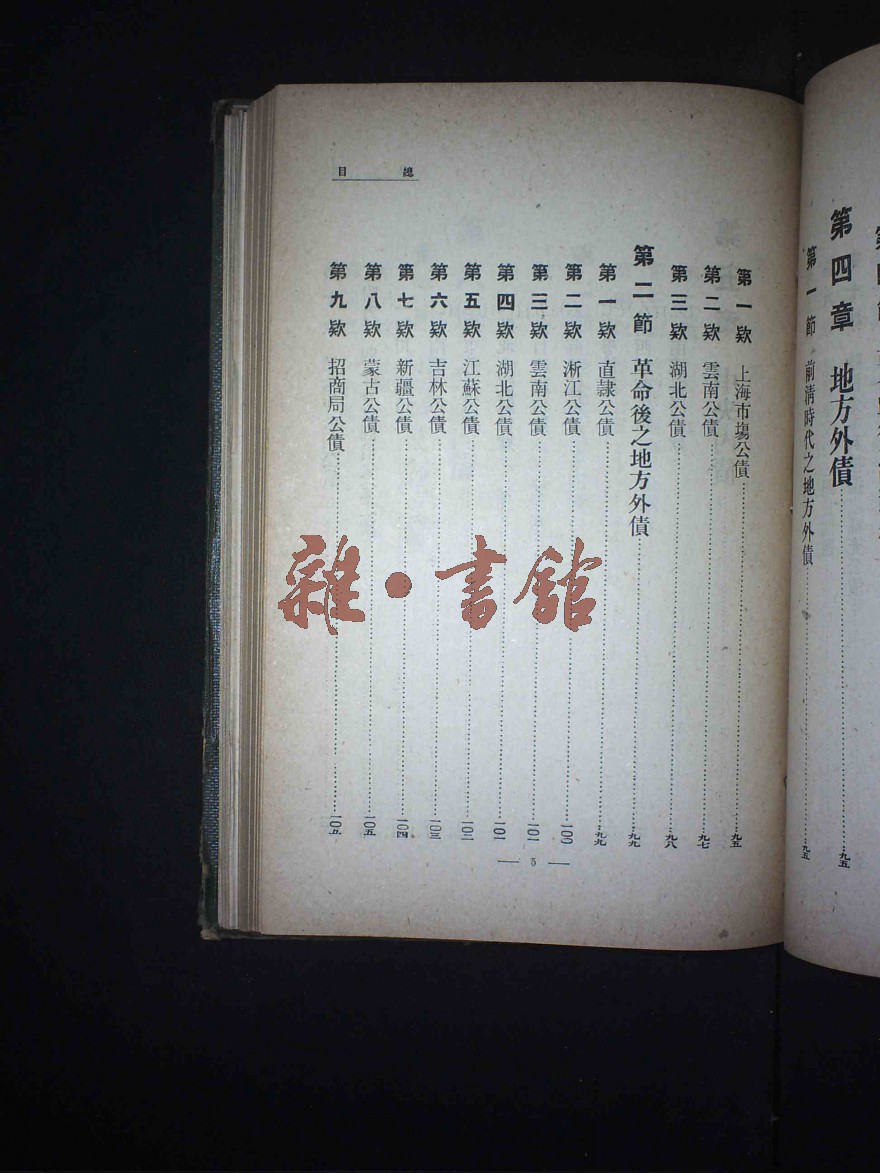 第四章　地方外債……九五
第一節　前清時代之地方外債……九五
總目
第一欵　上海市場公債……九五
第二欵　雲南公債……九七
第三欵　湖北公債……九八
第二節　革命後之地方外債……九九
第一欵　直隷公債……九九
第二欵　淅江公債……一〇〇
第三欵　雲南公債……一〇一
第四欵　湖北公債……一〇一
第五欵　江蘇公債……一〇二
第六欵　吉林公債……一〇三
第七欵　新疆公債……一〇四
第八欵　蒙古公債……一〇五
第九欵　招商局公債……一〇五
— 5 —
雜·書館